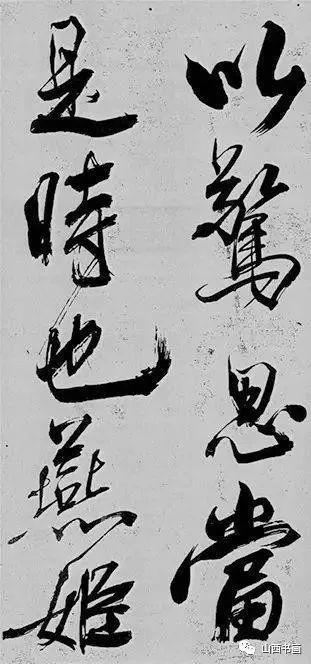 以驚思當
是時也燕姬
山西书画